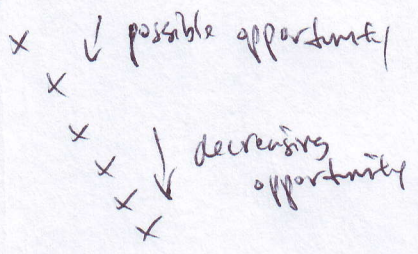 possible opportunity
decreasing
opportunity